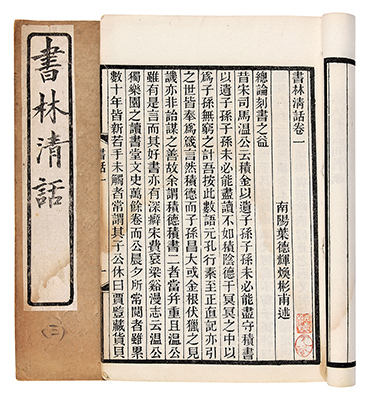 書林清話卷一
南陽葉德輝煥彬甫述
總論刻書之益
昔宋司馬溫公云積金以遺子孫子孫未必能盡守積書
以遺子孫子孫未必能盡讀不如積陰德于冥冥之中以
爲子孫無窮之計吾按此數語元孔行素至正直記亦引
之世皆奉爲箴言然積德而子孫昌大或金根伏獵之見
譏亦非詒謀之善故余謂積德積書二者當并重且溫公
雖有是言而其好書亦有深癖宋費袞梁谿漫志云溫公
獨樂園之讀書堂文史萬餘卷而公晨夕所常閱者雖累
數十年皆新若手未觸者常謂其子公休曰賈豎藏貨貝
書林清話
(三)